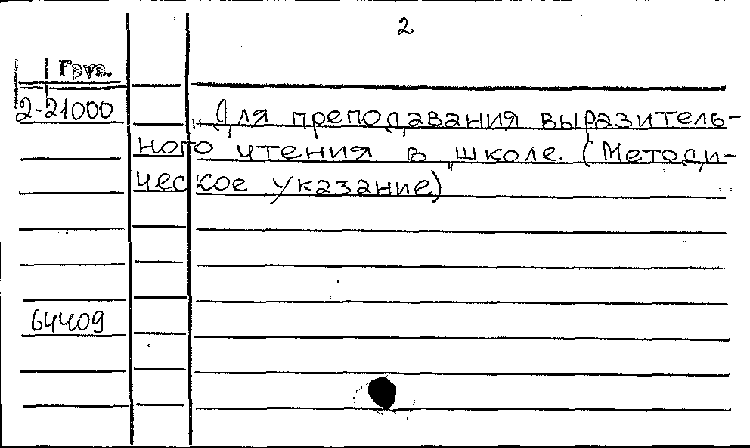 2
Груз.
2-21000
Для преподавания выразитель-
ного чтения в школе. (Методи-
ческое указание)
64409